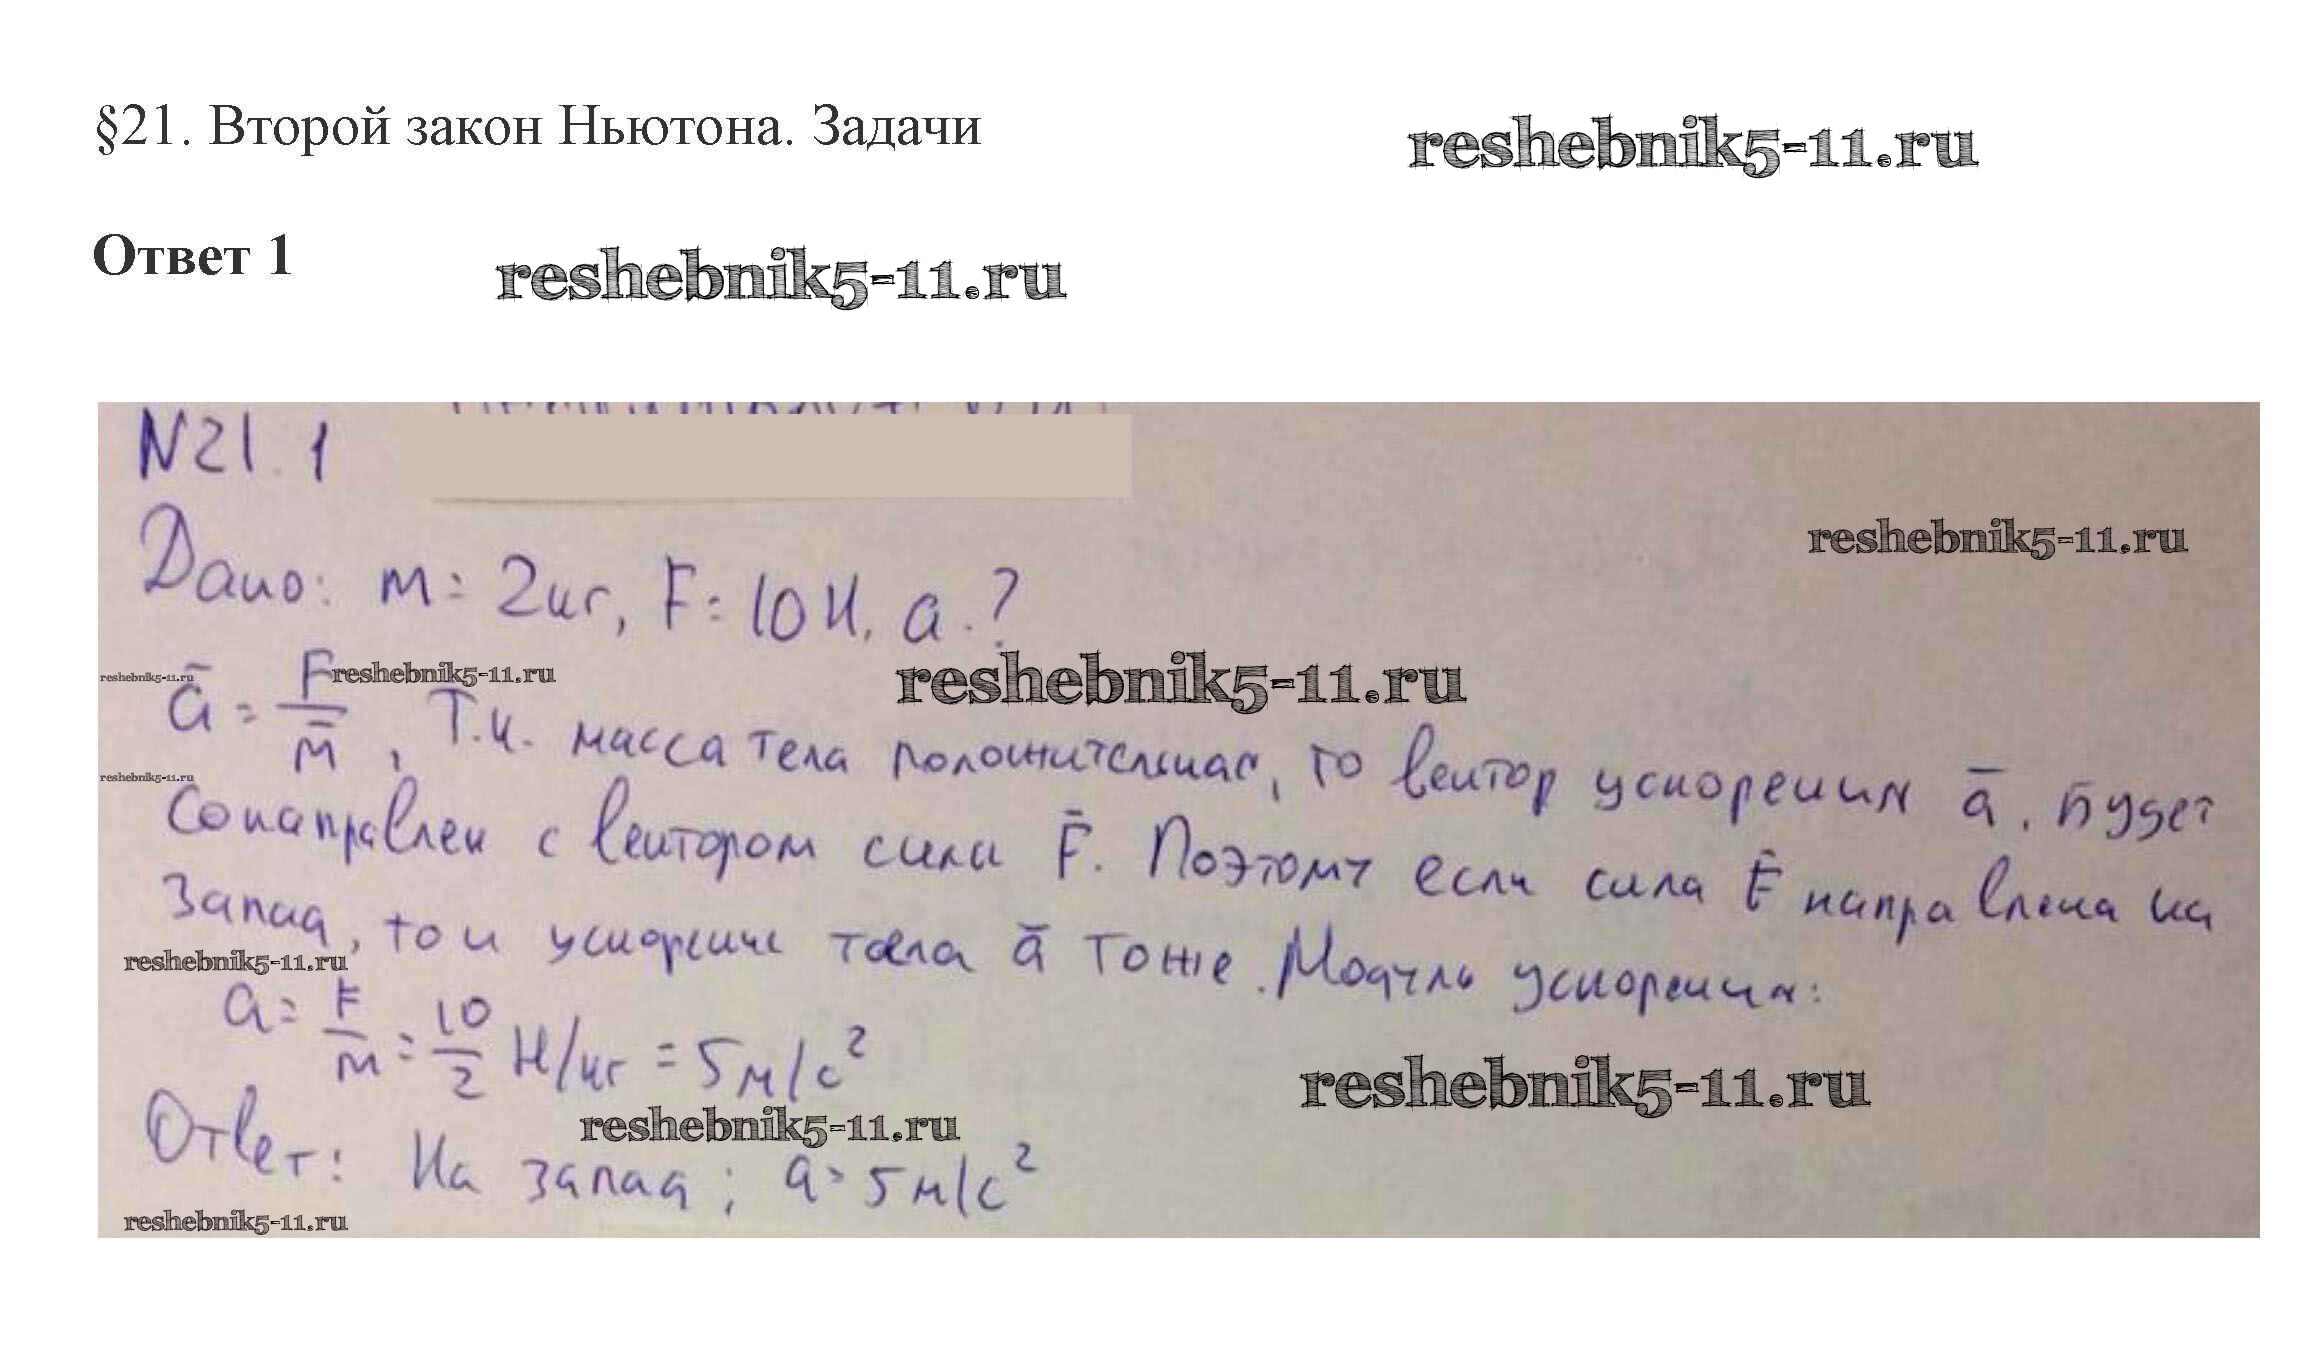 §21. Второй закон Ньютона. Задачи
reshebnik5-11.ru
Ответ 1
reshebnik5-11.ru
N21.1
Дано: m = 2кг, F = 10Н. a.?
reshebnik5-11.ru
reshebnik5-11.ru
reshebnik5-11.ru
reshebnik5-11.ru
a̅ = F/m̅, Т.к. масса тела положительная, то вектор ускорения a̅. будет
reshebnik5-11.ru
сонаправлен с вектором сили F̅. Поэтому если сила F̅ направлена на
запад, то и ускорение тела a̅ тоже. Модуль ускорения:
reshebnik5-11.ru
a = F/m = 10/2 Н/кг = 5м/с²
reshebnik5-11.ru
reshebnik5-11.ru
Ответ: На запад; a = 5м/с²
reshebnik5-11.ru